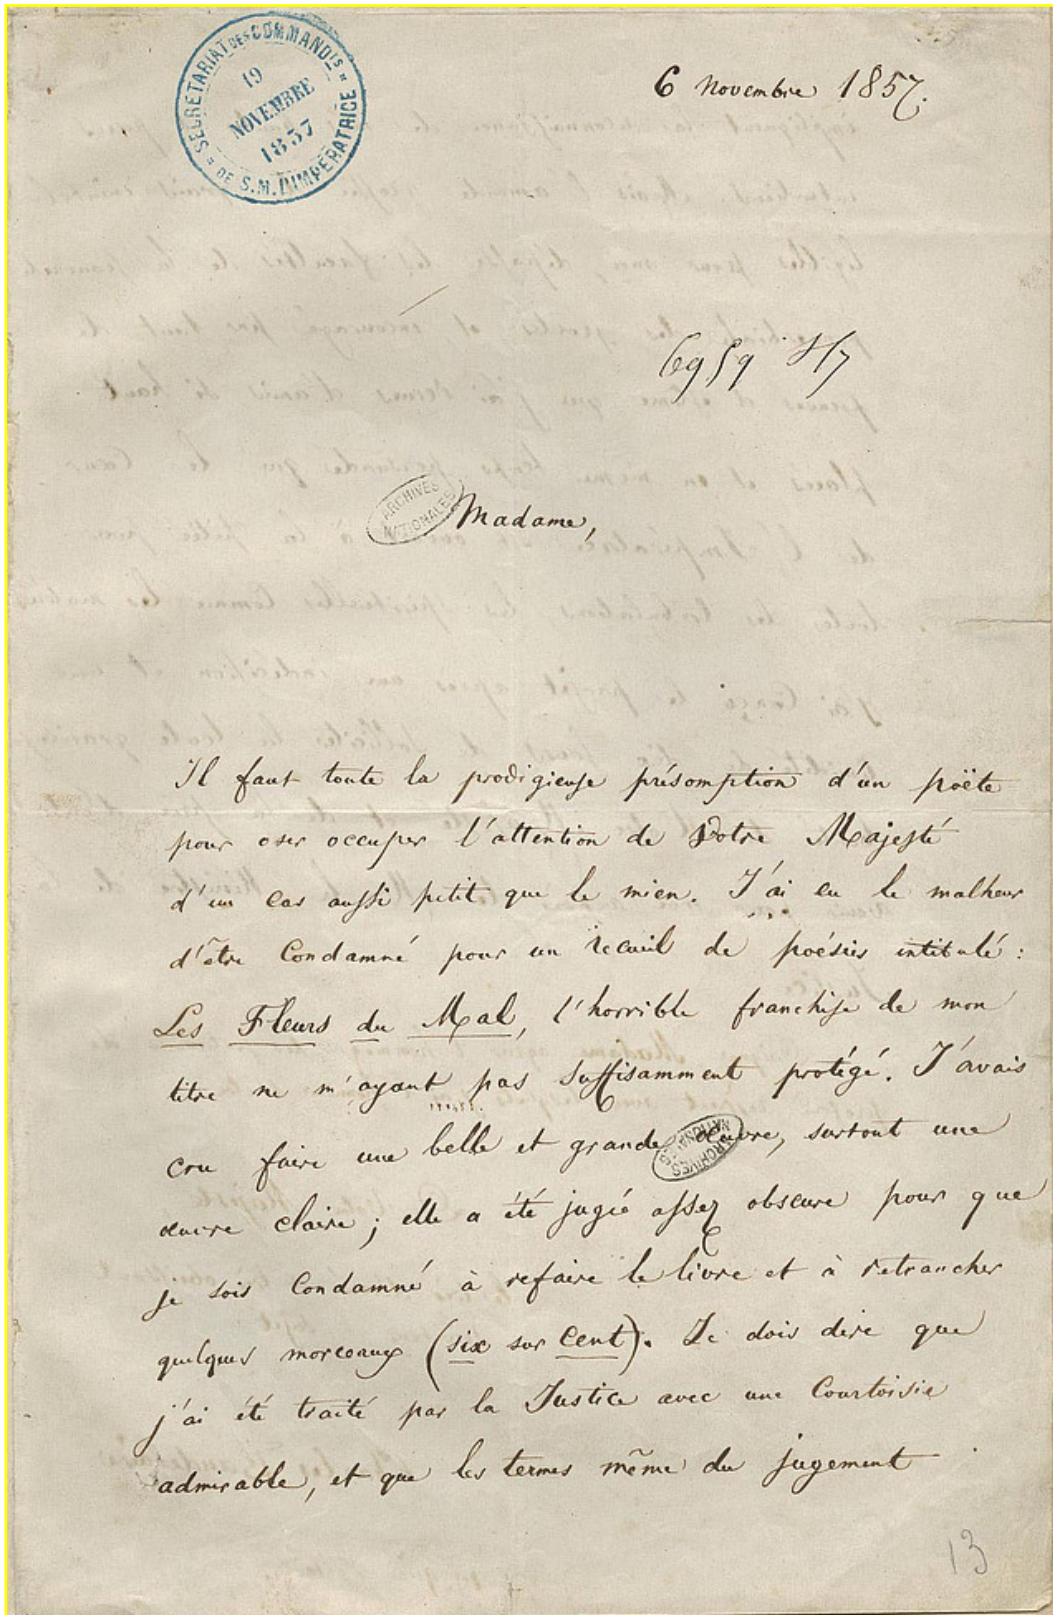 SECRÉTARIAT DES COMMAND.TS
19
NOVEMBRE
1857
DE S.M. L'IMPÉRATRICE
6 Novembre 1857.
6959
ARCHIVES
NATIONALES
Madame,
Il faut toute la prodigieuse présomption d'un poëte
pour oser occuper l'attention de Votre Majesté
d'un cas aussi petit que le mien. J'ai eu le malheur
d'être Condamné pour un recueil de poésies intitulé :
Les Fleurs du Mal, l'horrible franchise de mon
titre ne m'ayant pas suffisamment protégé. J'avais
cru faire une belle et grande œuvre, surtout une
œuvre claire ; elle a été jugée assez obscure pour que
je sois Condamné à refaire le livre et à retrancher
quelques morceaux (six sur Cent). Je dois dire que
j'ai été traité par la Justice avec une Courtoisie
admirable, et que les termes même du jugement
ARCHIVES
NATIONALES
13